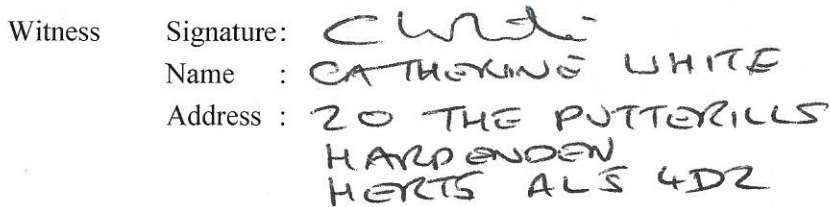 Witness Signature: C White
Name : CATHERINE WHITE
Address : 20 THE PUTTERILLS
HARPENDEN
HERTS AL5 4DZ